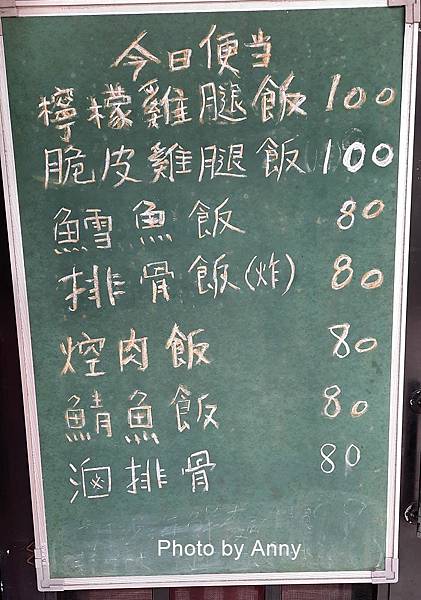 今日便当
檸檬雞腿飯 100
脆皮雞腿飯 100
鱈魚飯 80
排骨飯(炸) 80
焢肉飯 80
鯖魚飯 80
滷排骨 80
Photo by Anny